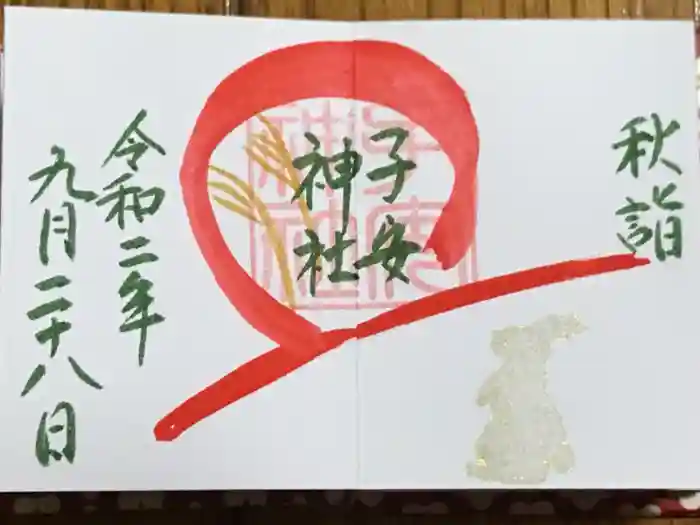 秋詣
子安
神社
令和二年
九月二十八日
子安
神社